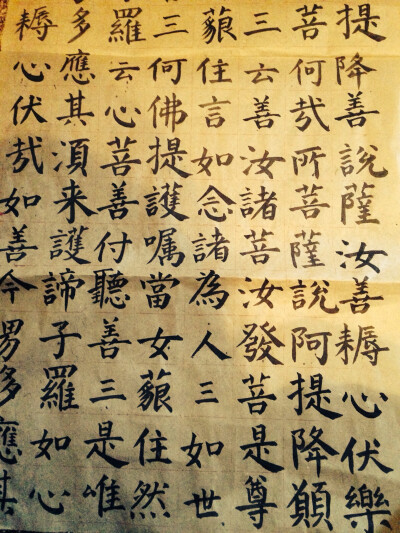 提降善說薩汝善耨心伏樂
菩何哉所菩薩說阿提降願
三云善汝諸菩汝發菩是尊
藐住言如念諸為人三如世
三何佛提護囑當女藐住然
羅云心菩善付聽善三是唯
多應其須来護諦子羅如心
耨心伏哉如善今男多應其